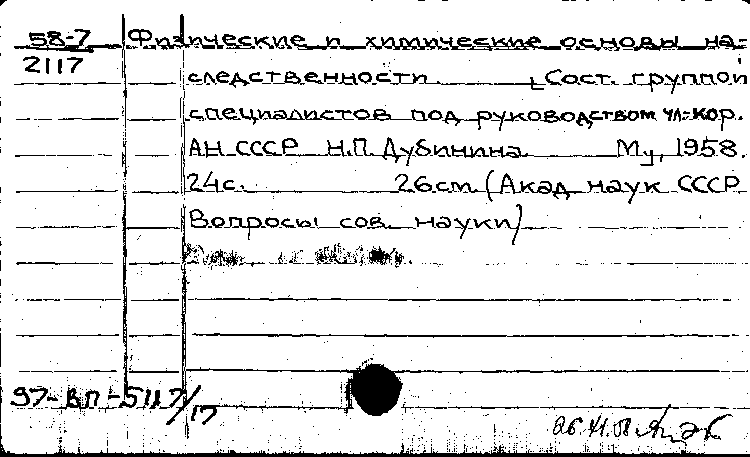 58-7 Физические и химические основы на-
2117 следственности. [Сост. группой
специалистов под руководством чл.-кор.
АН СССР Н.П. Дубинина. М., 1958.
24с. 26см. (Акад наук СССР
Вопросы сов. науки)
97-ВП-5117/17